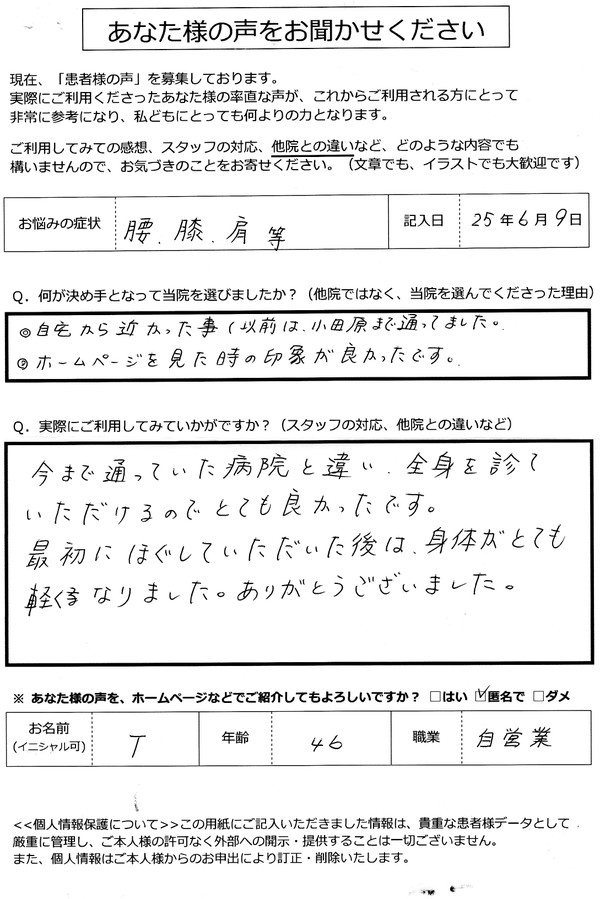 あなた様の声をお聞かせください
現在、「患者様の声」を募集しております。
実際にご利用くださったあなた様の率直な声が、これからご利用される方にとって
非常に参考になり、私どもにとっても何よりの力となります。
ご利用してみての感想、スタッフの対応、他院との違いなど、どのような内容でも
構いませんので、お気づきのことをお寄せください。（文章でも、イラストでも大歓迎です）
お悩みの症状 腰、膝、肩等 記入日 25年6月9日
Q．何が決め手となって当院を選びましたか？（他院ではなく、当院を選んでくださった理由）
◎自宅から近かった事（以前は、小田原まで通ってました。
②ホームページを見た時の印象が良かったです。
Q．実際にご利用してみていかがですか？（スタッフの対応、他院との違いなど）
今まで通っていた病院と違い、全身を診て
いただけるのでとても良かったです。
最初にほぐしていただいた後は、身体がとても
軽くなりました。ありがとうございました。
※ あなた様の声を、ホームページなどでご紹介してもよろしいですか？ □はい ☑匿名で □ダメ
お名前 T 年齢 46 職業 自営業
(イニシャル可)
<<個人情報保護について>>この用紙にご記入いただきました情報は、貴重な患者様データとして
厳重に管理し、ご本人様の許可なく外部への開示・提供することは一切ございません。
また、個人情報はご本人様からのお申出により訂正・削除いたします。